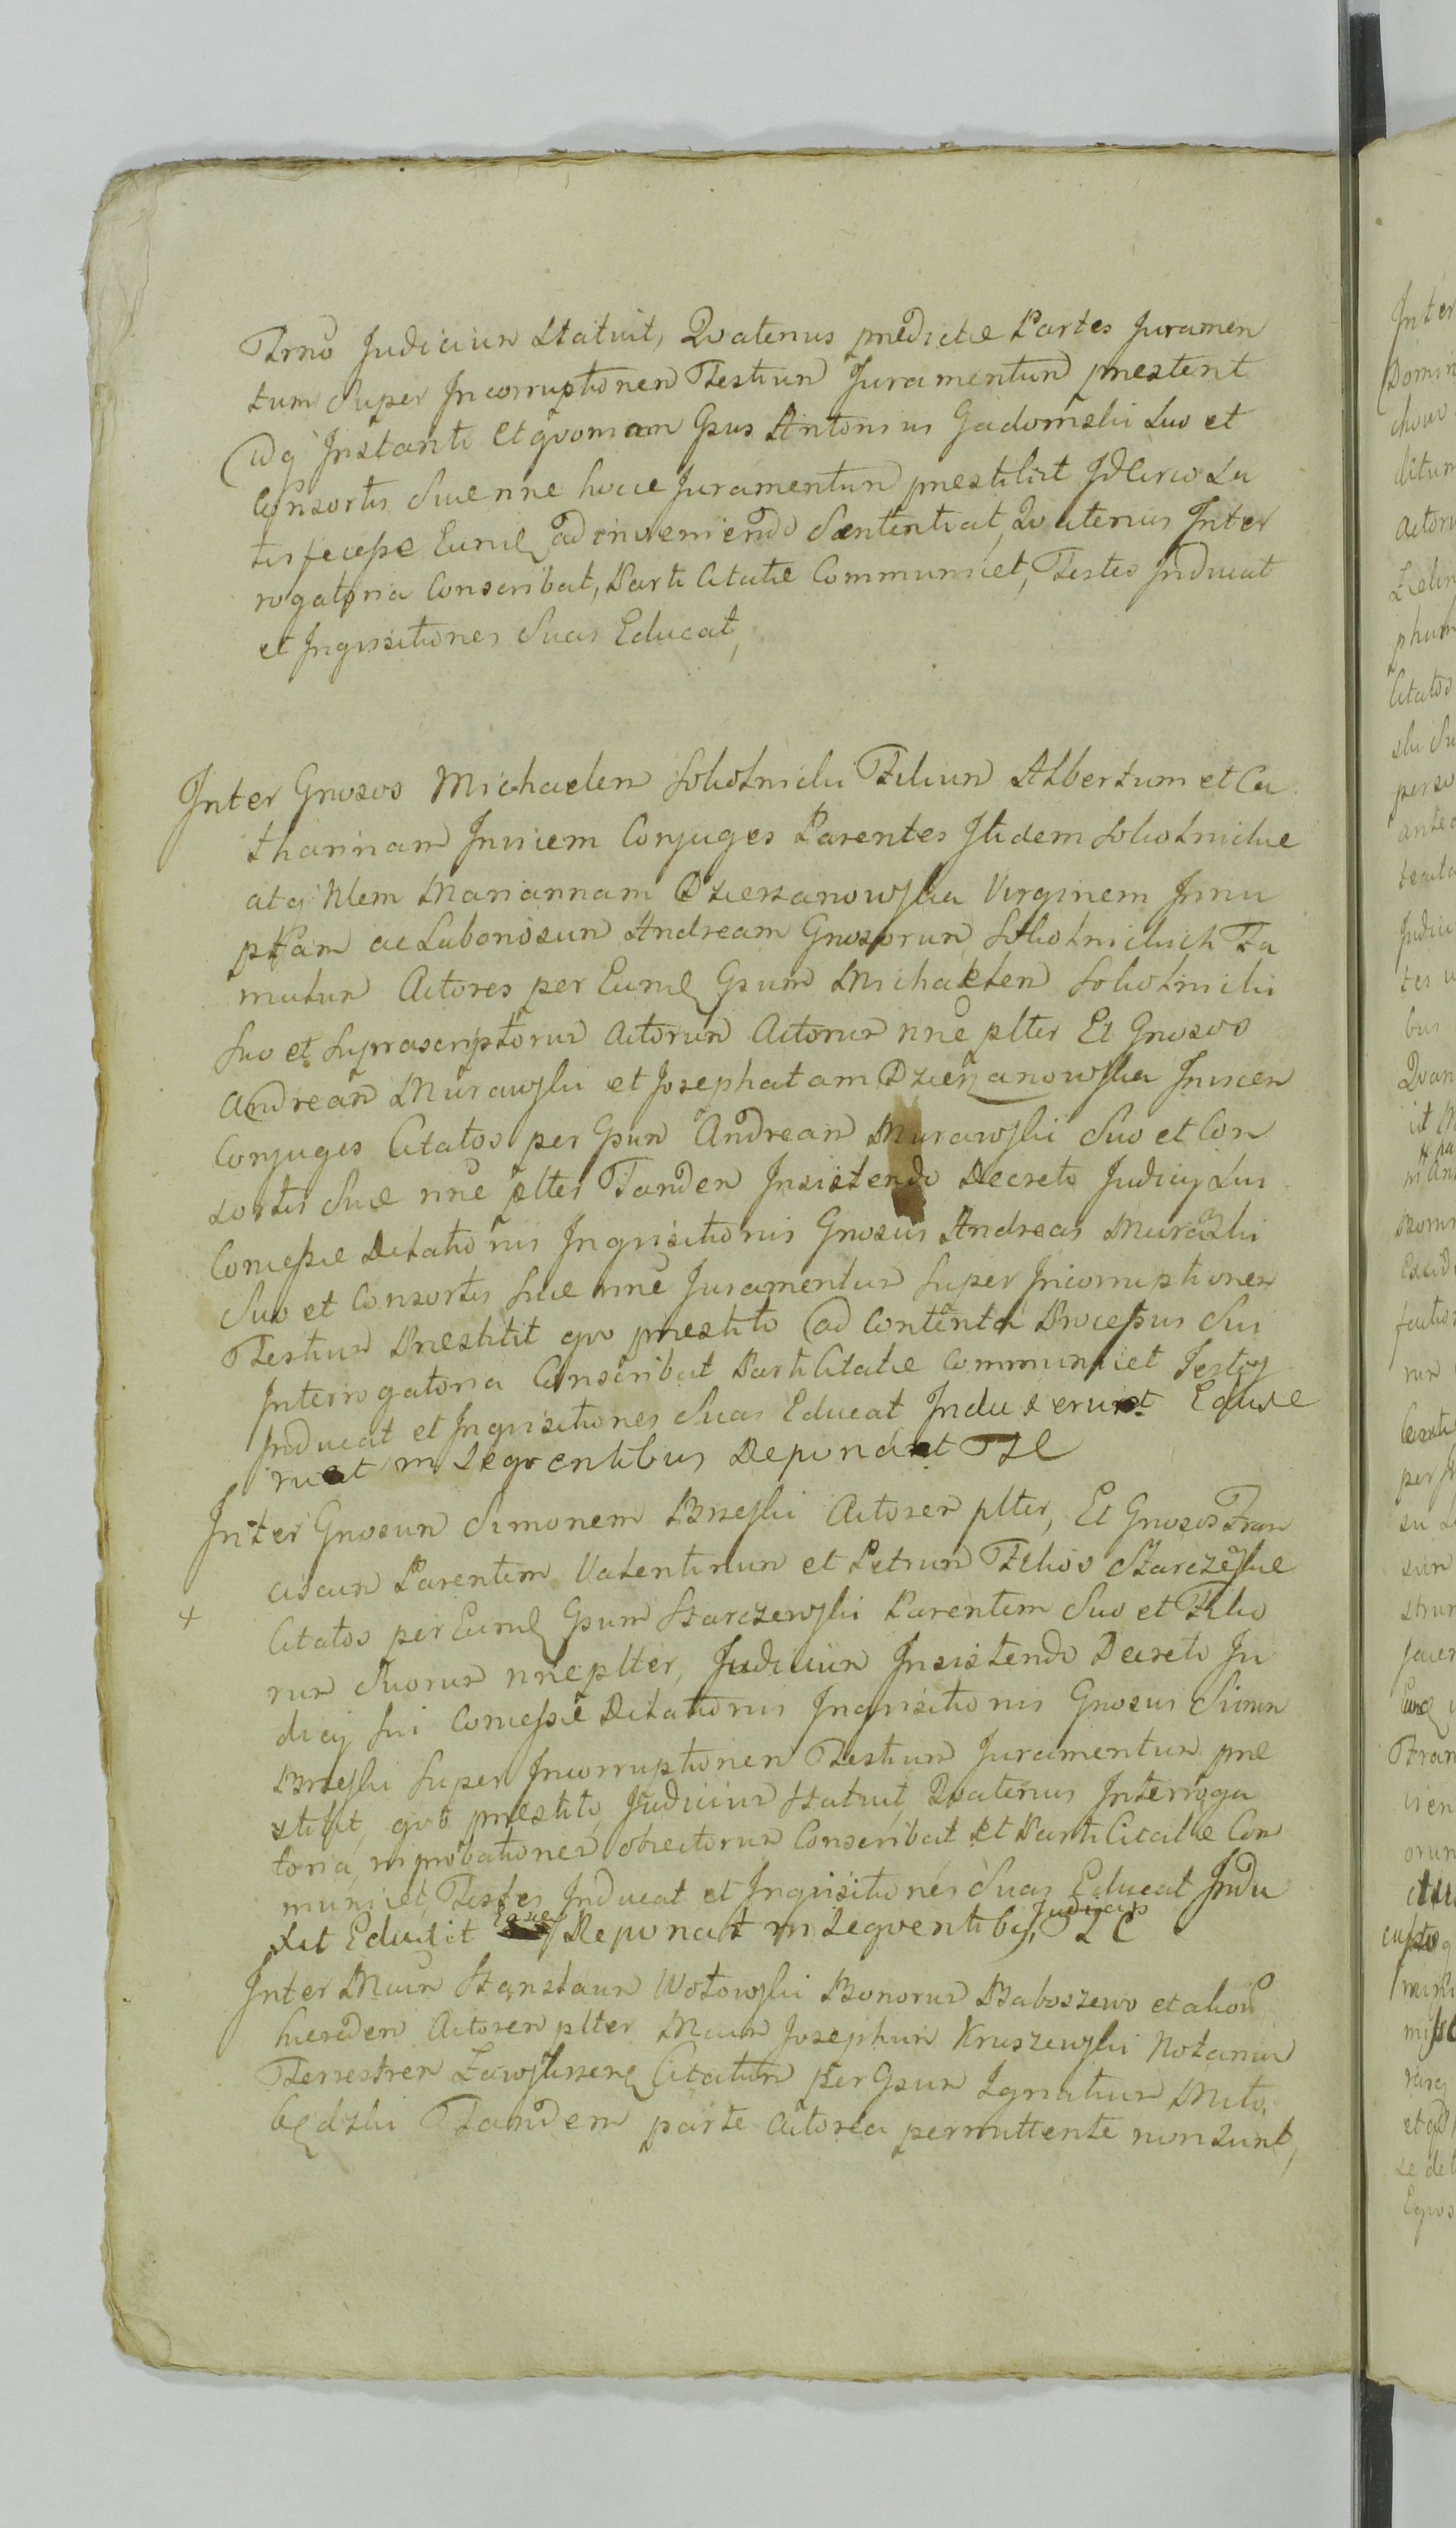 Trno Judicium Statuit, Qvatenus predictæ Partes Juramen
tum Super Incorruptionem Testium Juramentum prestent
Idq Instanti Et qvoniam Gsus Antonius Gadomski Suo et
Consortis Suæ nne hocce Juramentum prestitit Idcirco Sa
tisfecisse Eund adinveniendo Sententiat, Qvatenus Inter
rogatoria Conscribat, Parti Citatæ Communicet, Testes Inducat
et Inqvisitiones Suas Educat,
Inter Gnosos Michaelem Sokolnicki Filium Albertum et Ca
tharinam Invicem Conjuges Parentes Itidem Sokolnickie
atq Nlem Mariannam Dzierzanowska Virginem Innu
ptam ac Laboriosum Andream Gnosorum Sokolnickich Fa
mulum Actores per Eund Gsum Michaelem Sokolnicki
Suo et Suprascriptorum Actorum Actorum nne plter Et Gnosos
Andream Murawski et Josephatam Dzierzanowska Invicem
Conjuges Citatos per Gsum Andream Murawski Suo et Con
sortis Suæ nne plter Tandem Insistendo Decreto Judicij Sui
Concessæ Dilationis Inqvisitionis Gnosus Andreas Murawski
Suo et Consortis Suæ nne Juramentum Super Incorruptionem
Testium Prestitit qvo prestito ad Contenta Processus Sui
Interrogatoria Conscribat Parti Citatæ Communicet Testes
Inducat et Inqvisitiones Suas Educat Induxerunt Eduxe
runt in Seqventibus Deponant
Inter Gnosum Simonem Brzeski Actorem plter, Et Gnosos Fran
ciscum Parentem Valentinum et Petrum Filios Starczewskie
Citatos per Eund Gsum Starczewski Parentem Suo et Filio
rum Suorum nne plter, Judicium Insistendo Decreto Ju
dicij Sui Concessæ Dilationis Inqvisitionis Gnosus Simon
Brzeski Super Incorruptionem Testium Juramentum præ
stitit, qvo prestito, Judicium Statuit, Qvatenus Interroga
toria, in probationem obiectorum Conscribat et Parti Citatæ Com
municet, Testes Inducat et Inqvisitiones Suas Educat Indu
xit Eduxit Deponat in Seqventibus Judicijs
Inter Mcum Stanislaum Wołowski Bonorum Baboszewo et alior
hæredem Actorem plter Mcum Josephum Kruszewski Notarium
Terrestrem Zawskrzen Citatum per Gsum Ignatium Miło
będzki Tandem parte Actorea permittente non Sunt,